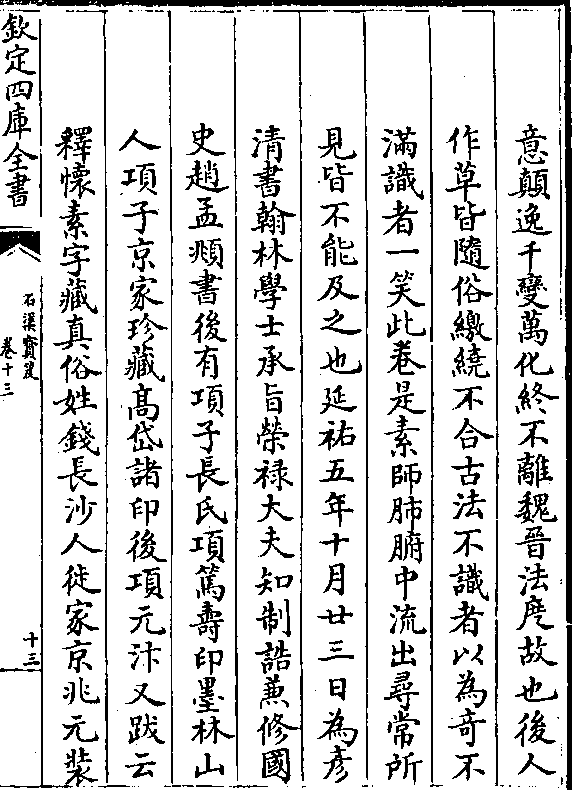 意顛逸千變萬化終不離魏晉法度故也後人
作草皆隨俗繳繞不合古法不識者以為竒不
滿識者一笑此卷是素師肺腑中流出尋常所
見皆不能及之也延祐五年十月廿三日為彥
清書翰林學士承旨榮禄大夫知制誥兼修國
史趙孟頫書後有項子長氏項篤壽印墨林山
人項子京家珍藏髙岱諸印後項元汴又跋云
釋懷素字藏真俗姓錢長沙人徙家京兆元裝
欽定四庫全書
石渠寳笈
卷十三
十三